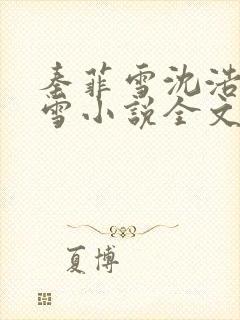 秦菲雪沈浩
雪小说全文
夏博